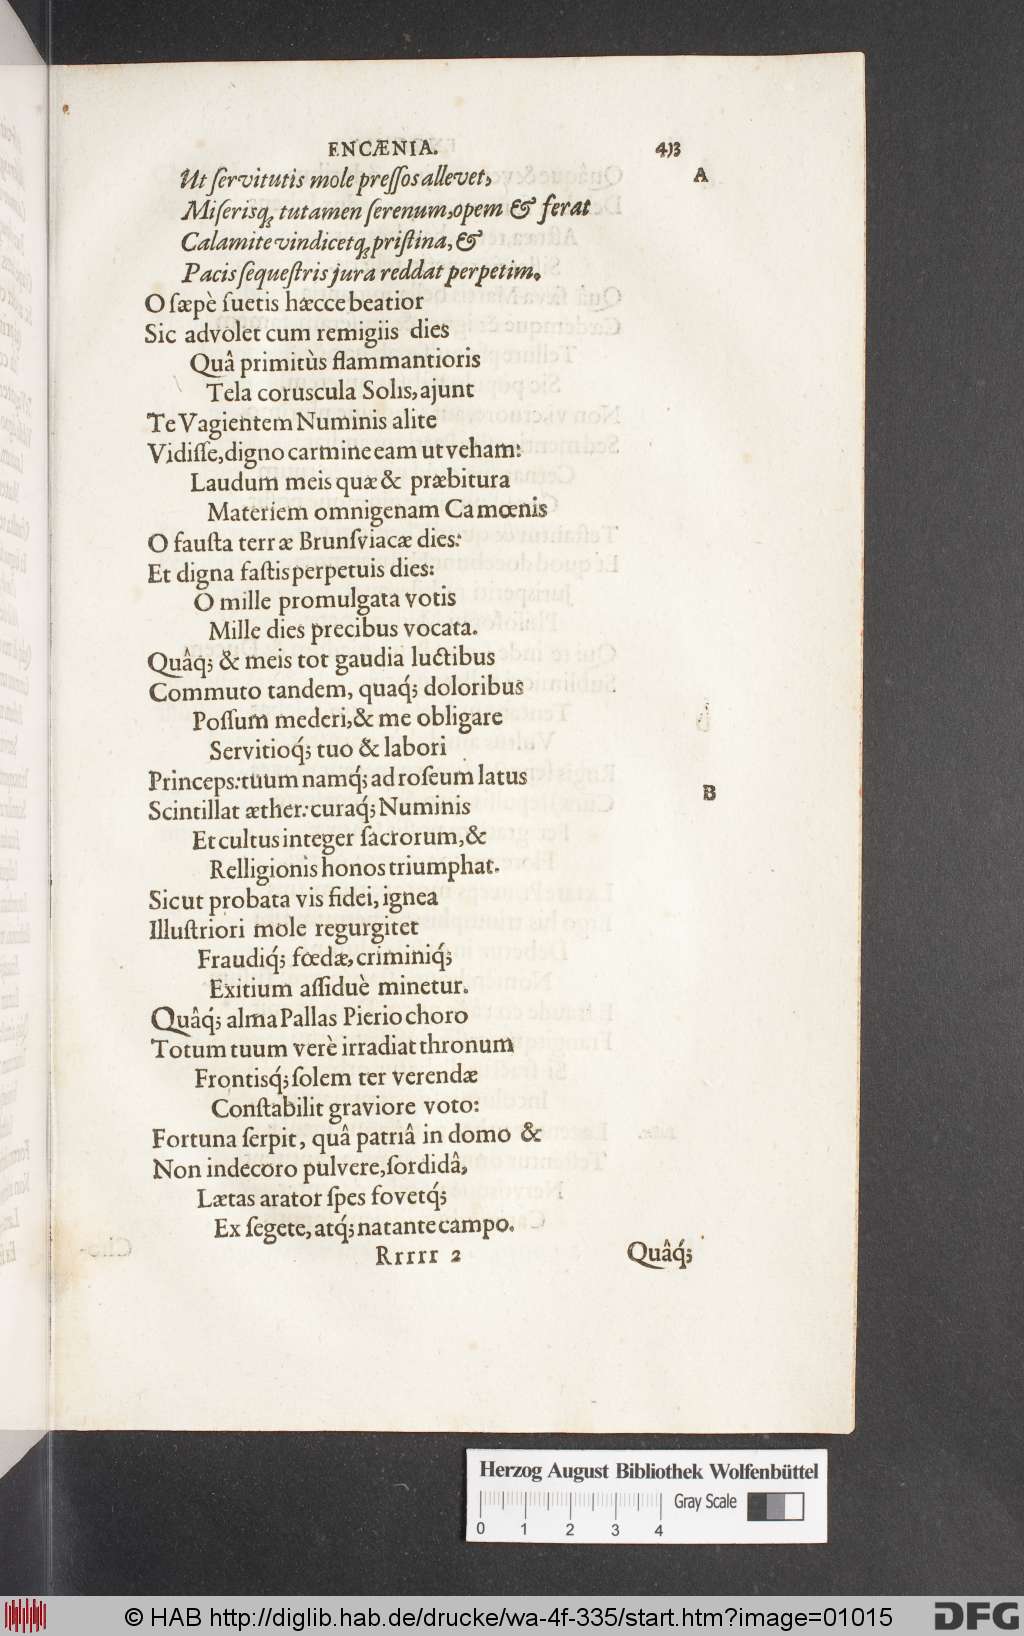 ENCÆNIA. 413
A
Ut ſervitutis mole preſſos allevet,
Miſerisq́; tutamen ſerenum, opem & ferat
Calamite vindicetq́; priſtina, &
Pacis ſequeſtris jura reddat perpetim.
O ſæpè ſuetis hæcce beatior
Sic advolet cum remigiis dies
Quâ primitùs flammantioris
Tela coruscula Solis, ajunt
Te Vagientem Numinis alite
Vidiſſe, digno carmine eam ut veham:
Laudum meis quæ & præbitura
Materiem omnigenam Camœnis
O fauſta terræ Brunſviacæ dies:
Et digna faſtis perpetuis dies:
O mille promulgata votis
Mille dies precibus vocata.
Quâq; & meis tot gaudia luctibus
Commuto tandem, quaq́; doloribus
Poſſum mederi, & me obligare
Servitioq́; tuo & labori
Princeps: tuum namq́; ad roſeum latus
B
Scintillat æther: curaq́; Numinis
Et cultus integer ſacrorum, &
Relligionis honos triumphat.
Sicut probata vis fidei, ignea
Illuſtriori mole regurgitet
Fraudiq́; fœdæ, criminiq́;
Exitium aſſiduè minetur.
Quâq́; alma Pallas Pierio choro
Totum tuum verè irradiat thronum
Frontisq́; ſolem ter verendæ
Conſtabilit graviore voto:
Fortuna ſerpit, quâ patriâ in domo &
Non indecoro pulvere, ſordidâ,
Lætas arator ſpes fovetq́;
Ex ſegete, atq́; natante campo.
Rrrrr 2 Quâq́;
Herzog August Bibliothek Wolfenbüttel
Gray Scale
0 1 2 3 4
© HAB http://diglib.hab.de/drucke/wa-4f-335/start.htm?image=01015
DFG